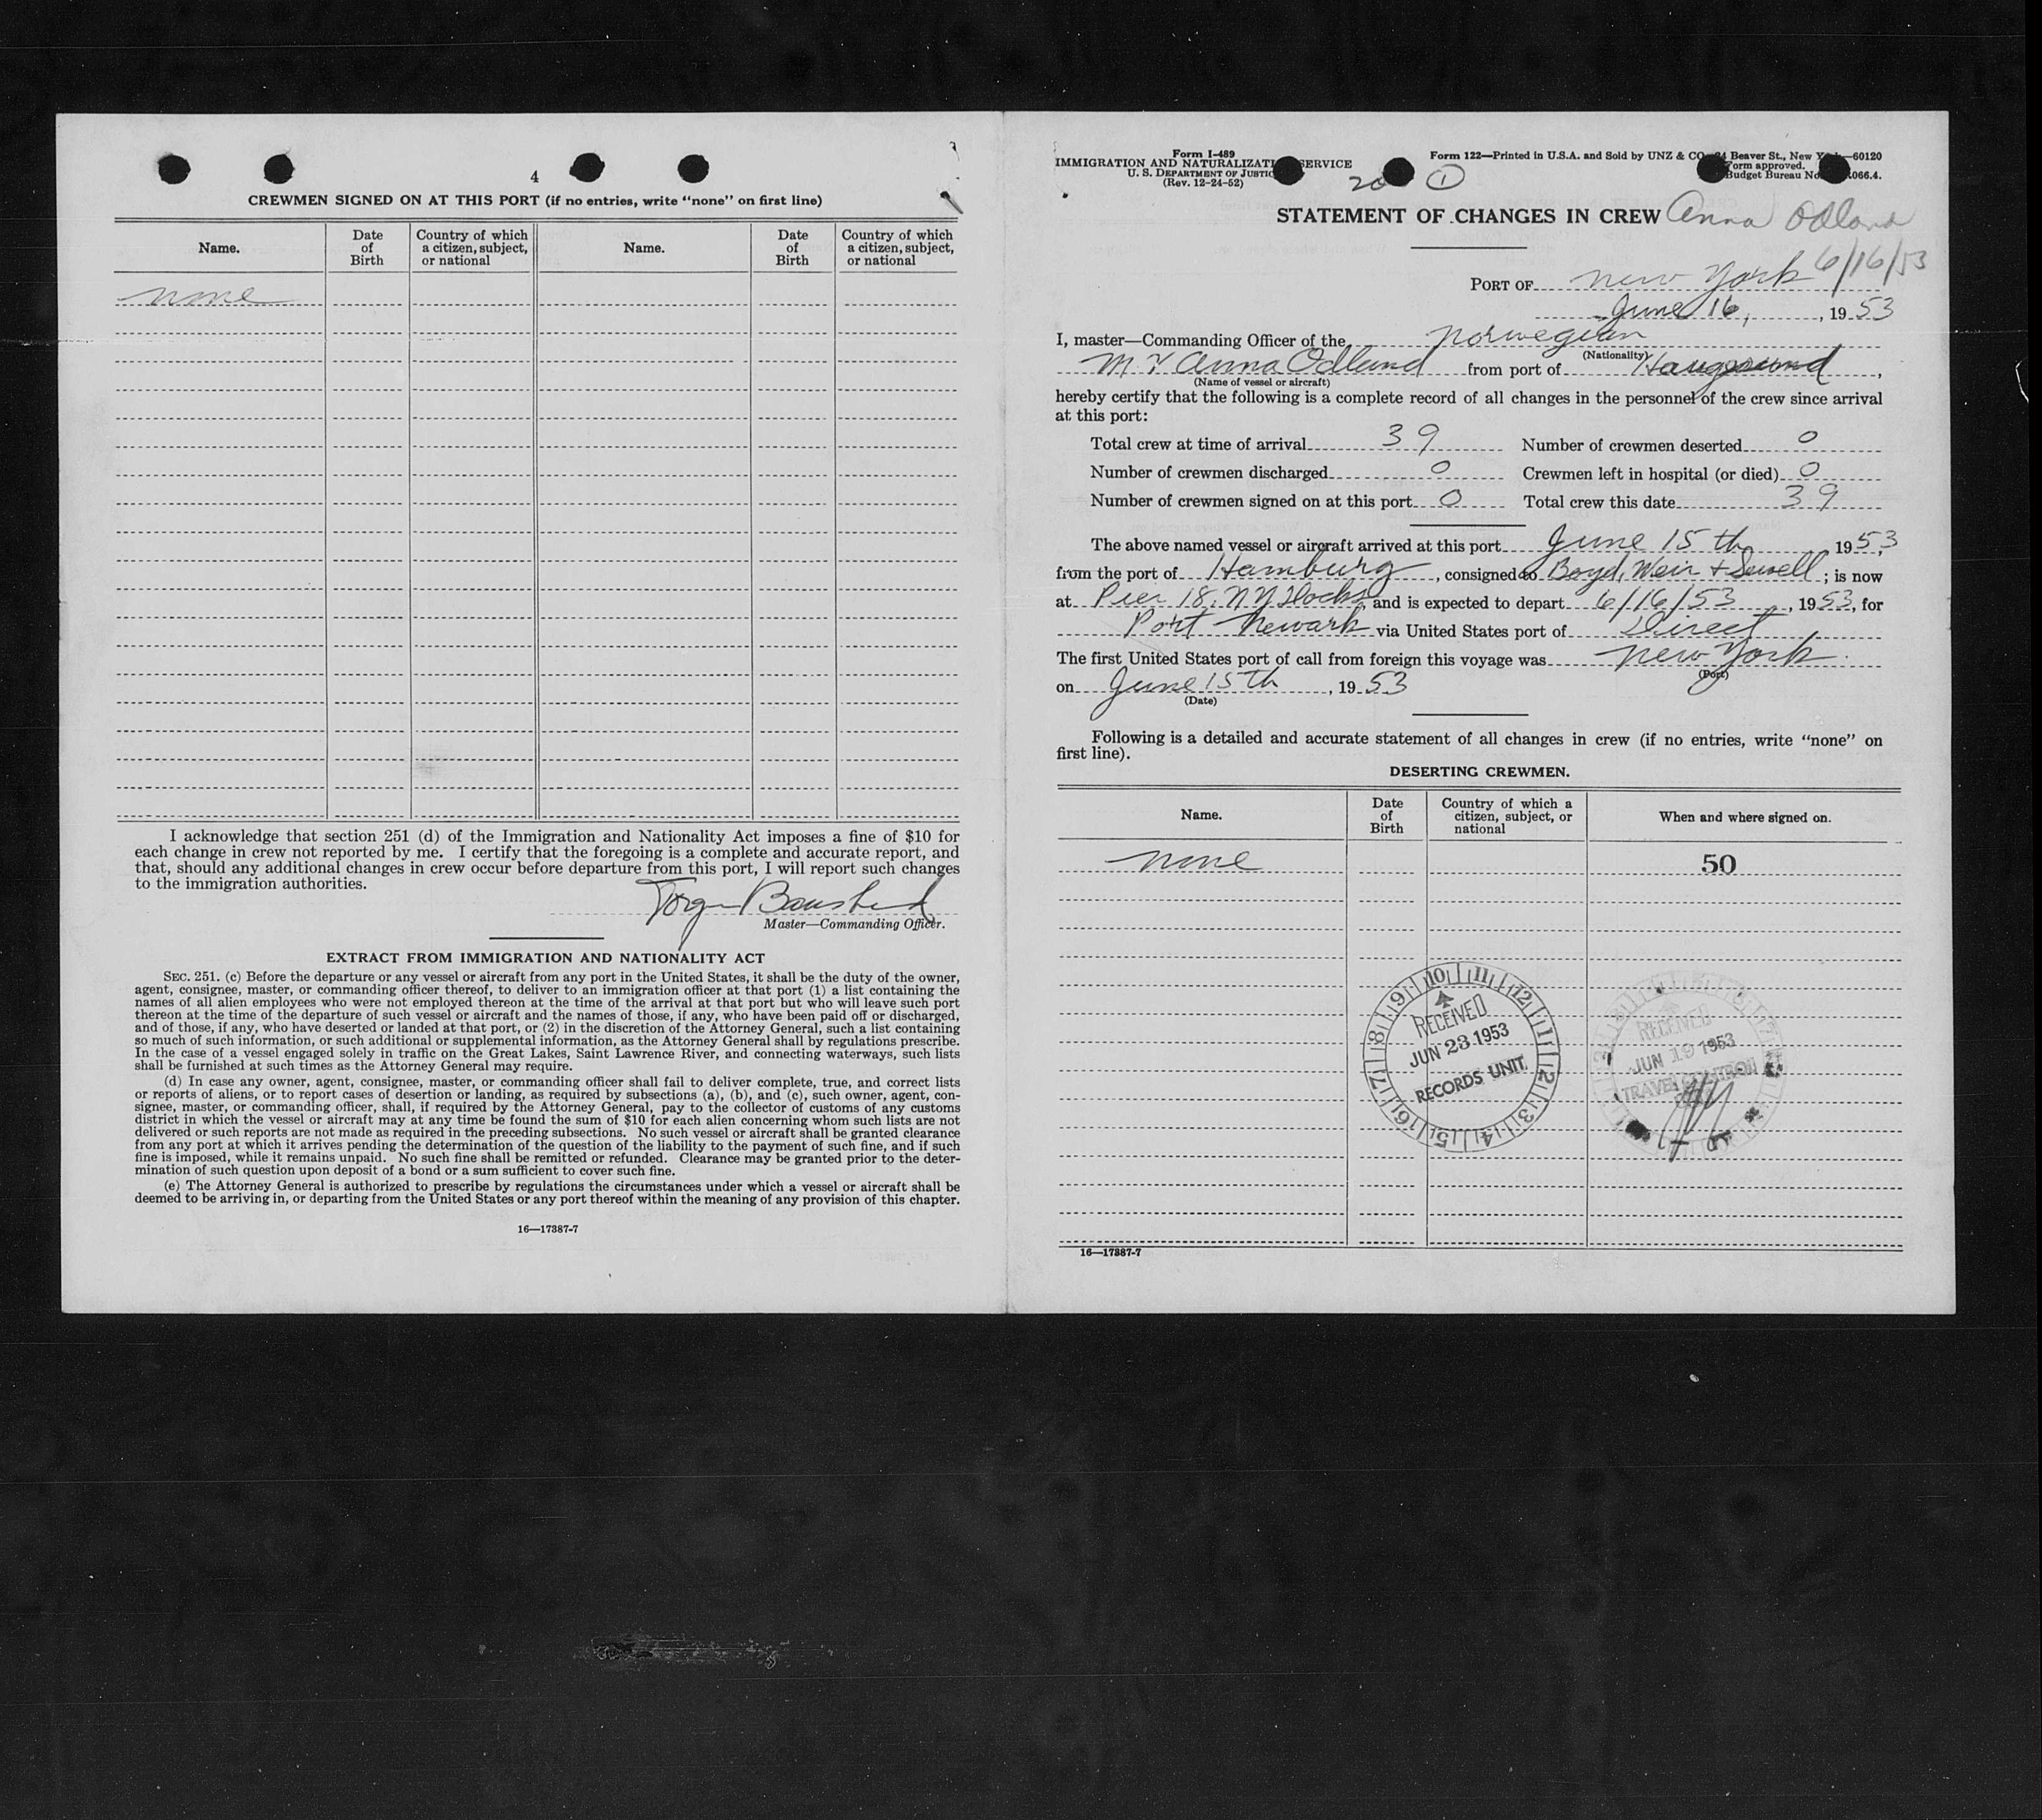 4
CREWMEN SIGNED ON AT THIS PORT (if no entries, write "none" on first line)
Name. Date of Birth Country of which a citizen, subject, or national Name. Date of Birth Country of which a citizen, subject, or national
none
I acknowledge that section 251 (d) of the Immigration and Nationality Act imposes a fine of $10 for
each change in crew not reported by me. I certify that the foregoing is a complete and accurate report, and
that, should any additional changes in crew occur before departure from this port, I will report such changes
to the immigration authorities.
Master—Commanding Officer.
EXTRACT FROM IMMIGRATION AND NATIONALITY ACT
SEC. 251. (c) Before the departure or any vessel or aircraft from any port in the United States, it shall be the duty of the owner,
agent, consignee, master, or commanding officer thereof, to deliver to an immigration officer at that port (1) a list containing the
names of all alien employees who were not employed thereon at the time of the arrival at that port but who will leave such port
thereon at the time of the departure of such vessel or aircraft and the names of those, if any, who have been paid off or discharged,
and of those, if any, who have deserted or landed at that port, or (2) in the discretion of the Attorney General, such a list containing
so much of such information, or such additional or supplemental information, as the Attorney General shall by regulations prescribe.
In the case of a vessel engaged solely in traffic on the Great Lakes, Saint Lawrence River, and connecting waterways, such lists
shall be furnished at such times as the Attorney General may require.
(d) In case any owner, agent, consignee, master, or commanding officer shall fail to deliver complete, true, and correct lists
or reports of aliens, or to report cases of desertion or landing, as required by subsections (a), (b), and (c), such owner, agent, con-
signee, master, or commanding officer, shall, if required by the Attorney General, pay to the collector of customs of any customs
district in which the vessel or aircraft may at any time be found the sum of $10 for each alien concerning whom such lists are not
delivered or such reports are not made as required in the preceding subsections. No such vessel or aircraft shall be granted clearance
from any port at which it arrives pending the determination of the question of the liability to the payment of such fine, and if such
fine is imposed, while it remains unpaid. No such fine shall be remitted or refunded. Clearance may be granted prior to the deter-
mination of such question upon deposit of a bond or a sum sufficient to cover such fine.
(e) The Attorney General is authorized to prescribe by regulations the circumstances under which a vessel or aircraft shall be
deemed to be arriving in, or departing from the United States or any port thereof within the meaning of any provision of this chapter.
16—17387-7
Form I-489
IMMIGRATION AND SERVICE
U. S. DEPARTMENT OF
(Rev. 12-24-52)
20 1
Form 122—Printed in U.S.A. and Sold by UNZ & Beaver St., New 60120
Form approved.
Budget Bureau
STATEMENT OF CHANGES IN CREW Anna Odland
6/16/53
PORT OF New York
June 16, , 19 53
I, master—Commanding Officer of the Norwegian
(Nationality)
M V Anna Odland from port of Haugesund ,
(Name of vessel or aircraft)
hereby certify that the following is a complete record of all changes in the personnel of the crew since arrival
at this port:
Total crew at time of arrival 39 Number of crewmen deserted 0
Number of crewmen discharged 0 Crewmen left in hospital (or died) 0
Number of crewmen signed on at this port 0 Total crew this date 39
The above named vessel or aircraft arrived at this port June 15 th 19 53,
from the port of Hamburg , consigned to Boyd, Weir & Sewell ; is now
at Pier 18, NY Docks and is expected to depart 6/16/53 , 19 53, for
Port Newark via United States port of Direct
The first United States port of call from foreign this voyage was New York
(Port)
on June 15 th , 19 53
(Date)
Following is a detailed and accurate statement of all changes in crew (if no entries, write "none" on
first line).
DESERTING CREWMEN.
Name. Date of Birth Country of which a citizen, subject, or national When and where signed on.
none 50
RECEIVED
JUN 23 1953
RECORDS UNIT
RECEIVED
JUN 19 1953
16—17387-7